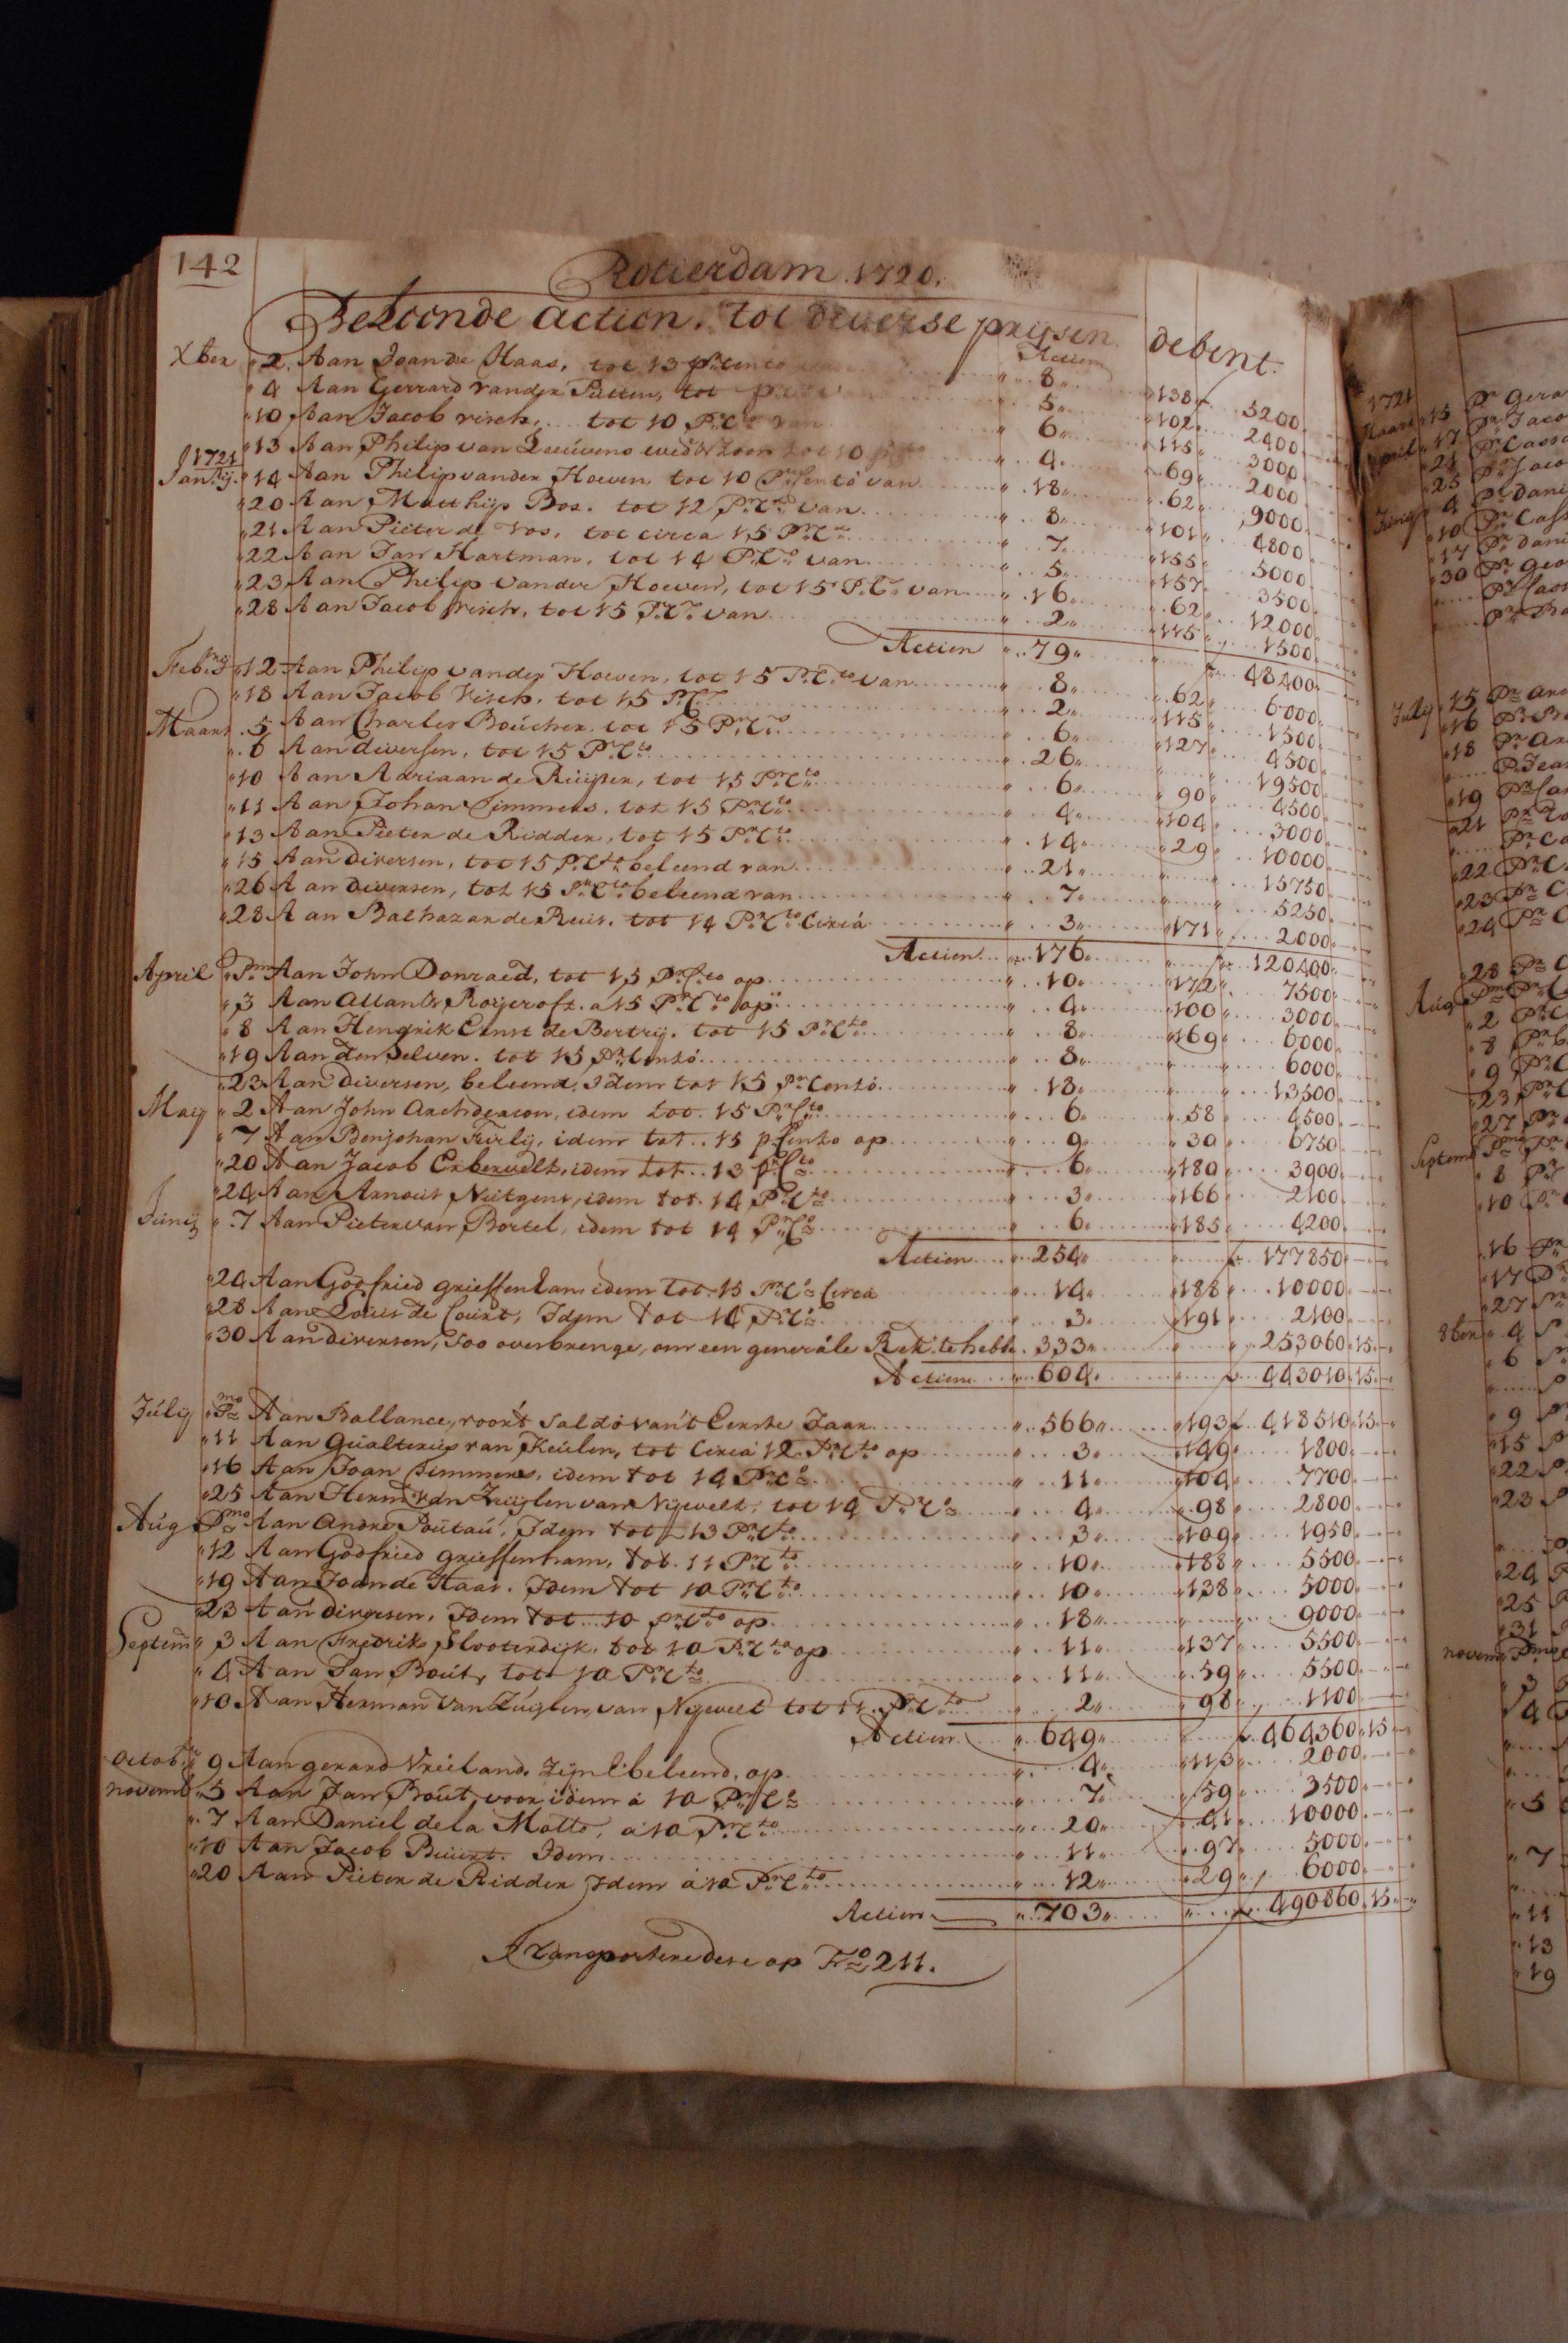 142
Rotterdam 1720.
Beleende actien. tot diverse prijsen debent.
Actien
Xber 2 Aan Joan de Haas, tot 13 pr Cento 8 138 f 5200
4 Aan Gerrard vander Putten, tot 5 102 2400
10 Aan Jacob Visch, tot 10 Pr Cto van 6 115 3000
13 Aan Philip van Leeuvens wed & Zoon tot 10 4 69 2000
1721
Janrij 14 Aan Philip vander Hoeven, tot 10 Pr Cento van 18 62 9000
20 Aan Matthijs Bos. tot 12 Pr Cto van 8 101 4800
21 Aan Pieter de Vos, tot circa 15 Pr Cto 7 155 5000
22 Aan Jan Hartman, tot 14 Pr Cto van 5 157 3500
23 Aan Philip vander Hoeven, tot 15 Pr Cto van 16 62 12000
28 Aan Jacob Visch, tot 15 Pr Cto van 2 115 1500
Actien 79 f 48400
Febrij 12 Aan Philip vander Hoeven, tot 15 Pr Cto van 8 62 6000
18 Aan Jacob Visch, tot 15 Pr Cto 2 115 1500
Maart 5 Aan Charles Boucher, tot 15 Pr Cto 6 127 4500
6 Aan diversen, tot 15 Pr Cto 26 19500
10 Aan Adriaan de Ruijter, tot 15 Pr Cto 6 90 4500
11 Aan Johan Simmens, tot 15 Pr Cto 4 104 3000
13 Aan Pieter de Ridder, tot 15 Pr Cto 14 29 10000
15 Aan Diversen, tot 15 Pr Cto beleend van 21 15750
26 Aan diversen, tot 15 Pr Cto beleend van 7 5250
28 Aan Balthazar de Reus, tot 14 Pr Cto Circa 3 171 2000
Actien 176 f 120400
April Pmo Aan John Donraed, tot 15 Pr Cto op 10 172 7500
3 Aan Allan & Roycroft. a 15 Pr Cto op 4 100 3000
8 Aan Hendrik Ernst de Bertrij. tot 15 Pr Cto 8 169 6000
19 Aan den Selven. tot 15 Pr Cento 8 6000
23 Aan diversen, beleend, Idem tot 15 Pr Cento 18 13500
Maij 2 Aan John Archdeacon, idem tot 15 Pr Cto 6 58 4500
7 Aan Benjohan Furlij, idem tot 15 p Cento op 9 30 6750
20 Aan Jacob Erbervelt, idem tot 13 Pr Cto 6 180 3900
24 Aan Arnout Nutgens, idem tot 14 Pr Cto 3 166 2100
Junij 7 Aan Pieter van Bortel, idem tot 14 Pr Co 6 185 4200
Actien 254 f 177850
24 Aan Godfried Grieffenham idem tot 15 Pr Co Circa 14 188 10000
28 Aan Louis de Court, Idem tot 14 Pr Co 3 191 2100
30 Aan diversen, Soo overbrenge, om een generále Rek: te hebb 333 253060 15
Actien 604 f 443010 15
Julij Pmo Aan Ballance, voor't saldo van't Eerste Jaar 566 193 f 418510 15
11 Aan Gualterus van Keulen, tot Circa 12 Pr Cto op 3 149 1800
16 Aan Joan Simmens, idem tot 14 Pr Co 11 104 7700
25 Aan Herm van Zuijlen van Nijevelt, tot 14 Pr Co 4 98 2800
Aug Pmo Aan Andre Poutau, Idem tot 13 Pr Cto 3 109 1950
12 Aan Godfried Grieffenham, tot 11 Pr Cto 10 188 5500
19 Aan Joan de Haas. Idem tot 10 Pr Cto 10 138 5000
23 Aan diversen, Idem tot 10 Pr Cto op 18 9000
Septem 3 Aan Fredrik Slooterdijk, tot 10 Pr Cto op 11 137 5500
4 Aan Jan Bout, tot 10 Pr Cto 11 59 5500
10 Aan Herman van Zuijlen van Nijevelt tot 11 Pr Cto 2 98 1100
Actien 649 f 464360 15
Octob 9 Aan Gerard Vreeland, Zijn beleend. op 4 113 2000
Novemb 5 Aan Jan Bout, voor idem á 10 Pr Co 7 59 3500
7 Aan Daniel de la Motte, á 10 Pr Cto 20 41 10000
10 Aan Jacob Buurt. Idem 11 97 5000
20 Aan Pieter de Ridder Idem á 10 Pr Cto 12 29 6000
Actien 703 f 490860 15
Transportere dese op Fo 211.
1721
Maart 15 Pr Gera
April 17 Pr Jaco
21 Pr Casso
25 Pr Jaco
Junij 4 Pr Dani
10 Pr Cass
17 Pr Dani
30 Pr Geo
Julij 15 Pr And
16
18 Pr An
Pr Jean
19
21
22
23
24
28
Aug Pmo
2
8
9
23
27
Septem
8
10
16
17
27
8ber 4
6
9
15
22
23
24
25
31
novem Pmo
3
4
5
7
11
13
19